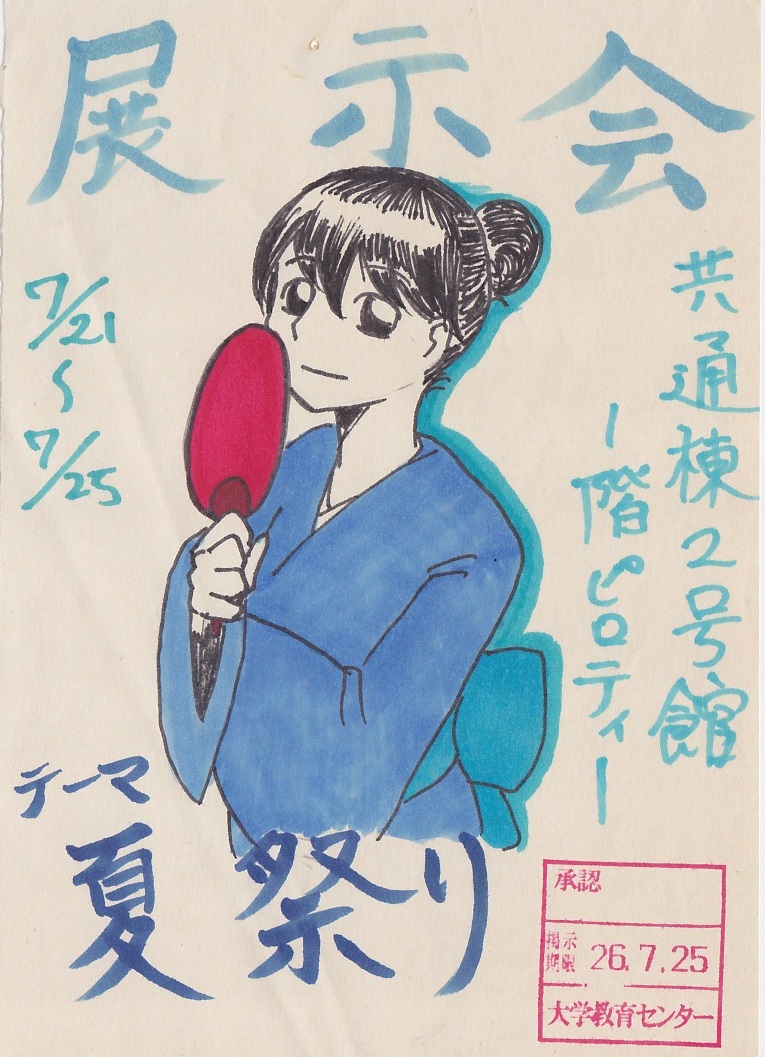 展示会
共通棟2号館
一階ピロティー
7/21
〜
7/25
テーマ
夏祭り
承認
掲示
期限 26.7.25
大学教育センター